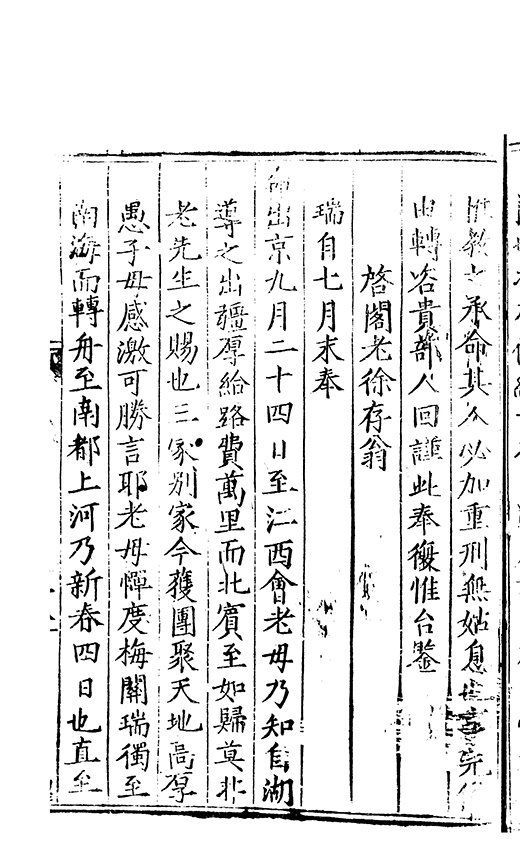 惟教之承命其人必加重刑無姑息也
申轉咨貴部人回謹此奉復惟台鑒
啓閣老徐存翁
瑞自七月末奉
命出京九月二十四日至江西會老母乃知自湖
導之出疆厚給路費萬里而北賓至如歸莫非
老先生之賜也三家別家今獲團聚天地高厚
愚子母感激可勝言耶老母憚度梅關瑞獨至
南海而轉舟至南都上河乃新春四日也直至